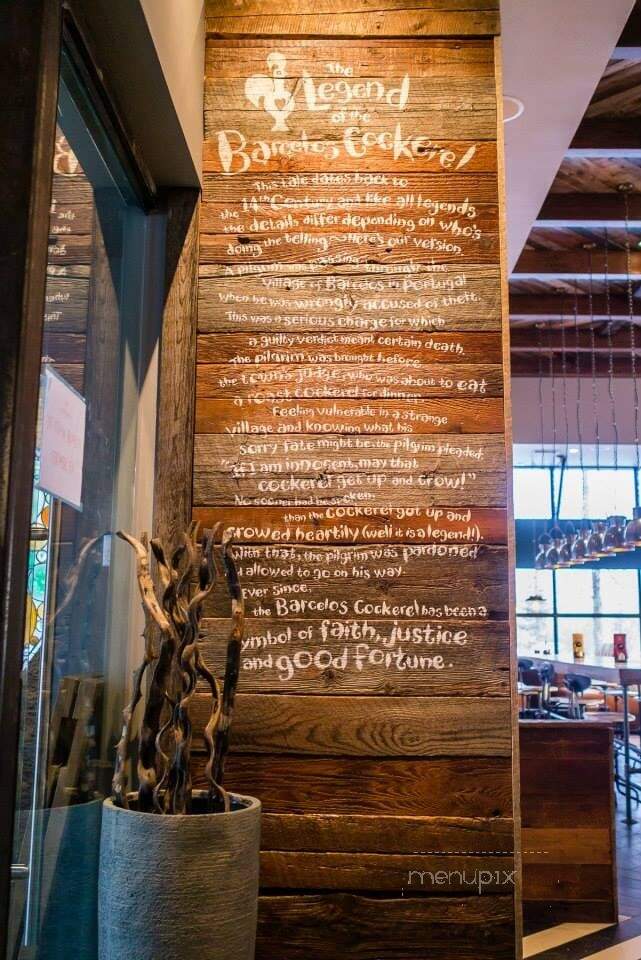 The
Legend
of the
Barcelos Cockerel
This tale dates back to
the 14th Century and like all legends
the details differ depending on who's
doing the telling - here's our version.
A pilgrim was passing through the
village of Barcelos in Portugal
when he was wrongly accused of theft.
This was a serious charge for which
a guilty verdict meant certain death.
The pilgrim was brought before
the town's judge, who was about to eat
a roast cockerel for dinner.
Feeling vulnerable in a strange
village and knowing what his
sorry fate might be, the pilgrim pleaded,
"If I am innocent, may that
cockerel get up and crow!"
No sooner had he spoken
than the cockerel got up and
crowed heartily (well it is a legend!).
With that, the pilgrim was pardoned
allowed to go on his way.
Ever since,
the Barcelos Cockerel has been a
ymbol of faith, justice
and good fortune.
menupix